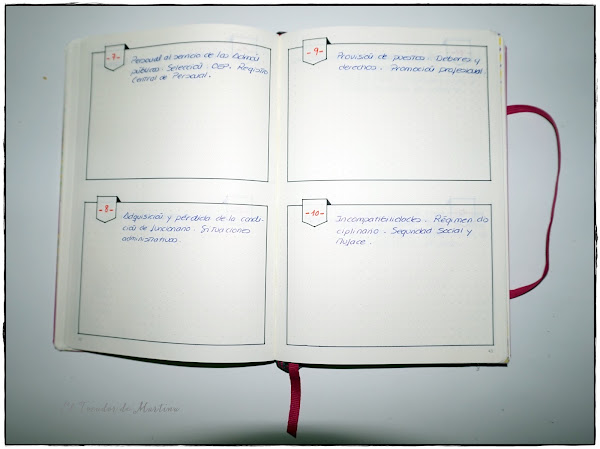 -7-
Personal al servicio de las Admón
públicas. Selección. OEP. Registro
Central de Personal.
-8-
Adquisición y pérdida de la condi-
ción de funcionario. Situaciones
administrativas
-9-
Provisión de puestos. Deberes y
derechos. Promoción profesional.
-10-
Incompatibilidades. Régimen dis
ciplinario. Seguridad Social y
Muface.
de Martina